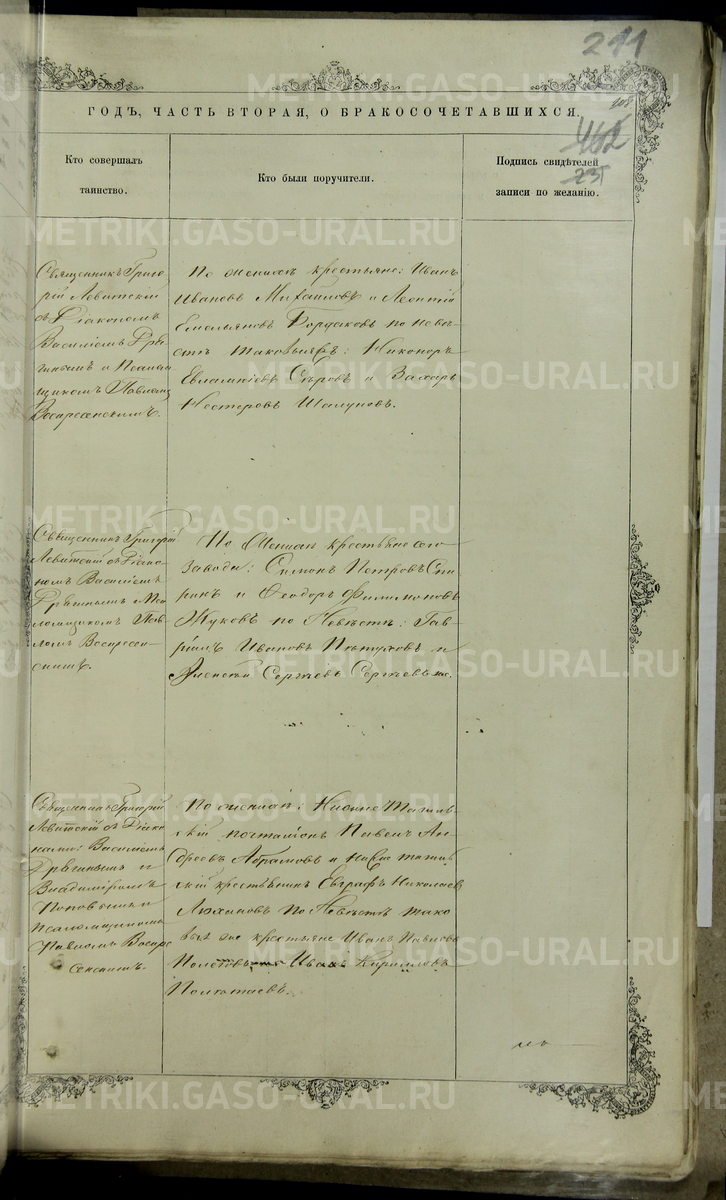 211
462
235
ГОДЪ, ЧАСТЬ ВТОРАЯ, О БРАКОСОЧЕТАВШИХСЯ.
Кто совершалъ
таинство.
Кто были поручители.
Подпись свидѣтелей
записи по желанію.
Священникъ Григо
рій Левитскій
съ Діакономъ
Василіемъ
и Псалом
щикомъ Павломъ
Воскресенскимъ.
По женихѣ крестьяне: Иванъ
Ивановъ Михайловъ и Леонтій
Емельяновъ Бордаковъ по невѣ
стѣ таковые же: Никоноръ
Евлампіевъ и Захаръ
Нестеровъ Шалуновъ.
Священникъ Григорій
Левитскій съ Діако
номъ Василіемъ
Пса
ломщикомъ Пав
ломъ Воскресен
скимъ.
По Женихѣ крестьяне сего
завода: Симонъ Петровъ Спи
ринъ и Ѳеодоръ Филимоновъ
Жуковъ по Невѣстѣ: Гав
рiилъ Ивановъ и
Алексѣй Сергѣевъ Сергѣевыхъ.
Священникъ Григорій
Левитскій съ Діако
нами: Василіемъ
и
Владиміромъ
Поповымъ и
псаломщикомъ
Павломъ Воскре
сенскимъ.
По женихѣ: Нижне Тагиль
скій почталіонъ Павелъ Ан
дреевъ Абрамовъ и Нижне тагиль
скій крестьянинъ Евграфъ Николаевъ
Ляхановъ По Невѣстѣ тако
вые же крестьяне Иванъ Павловъ
Иванъ Кирилловъ
METRIKI.GASO-URAL.RU